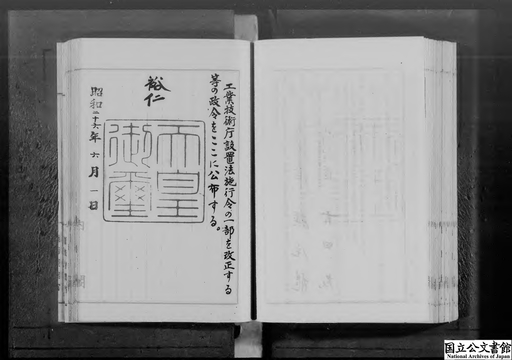 工業技術庁設置法施行令の一部を改正する
等の政令をここに公布する。
裕仁
天皇
御璽
昭和二十六年六月一日
国立公文書館
National Archives of Japan